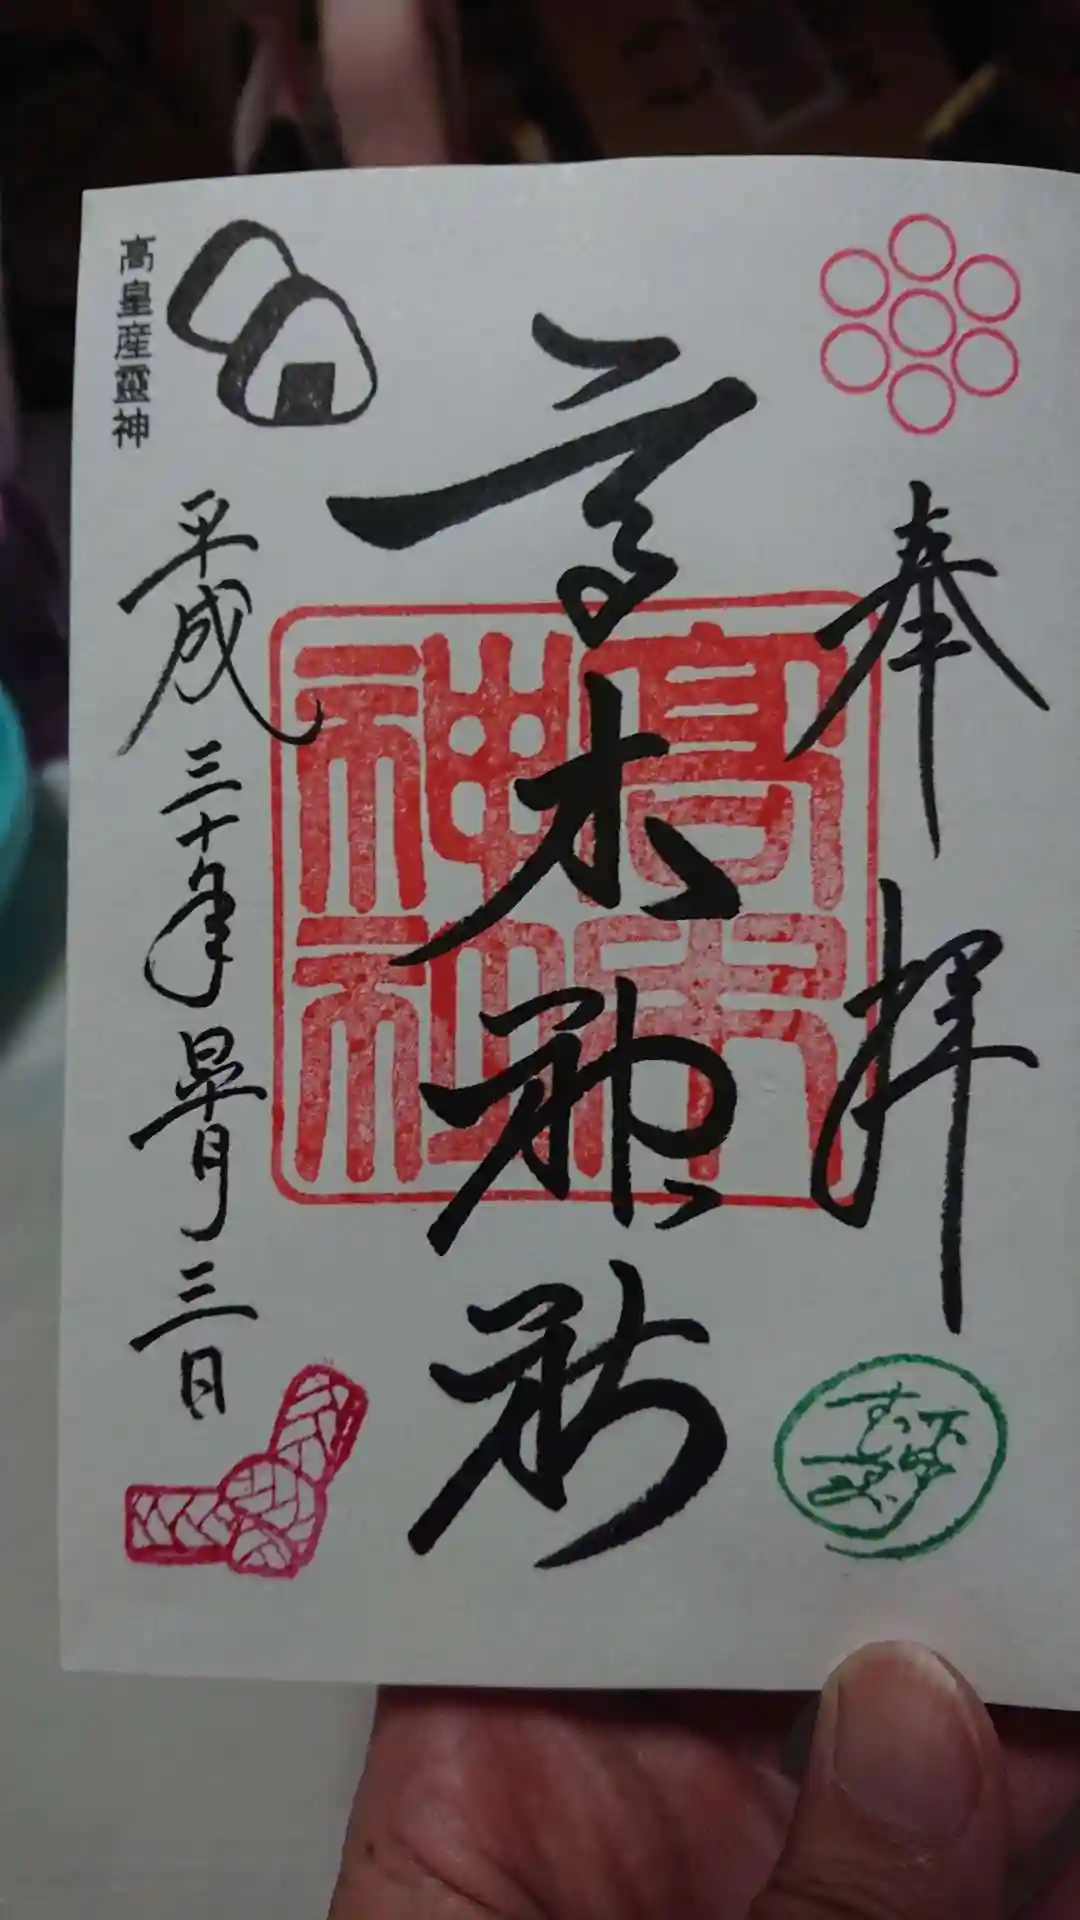 奉拝
高木神社
高木神社
平成三十年皐月三日
高皇産靈神